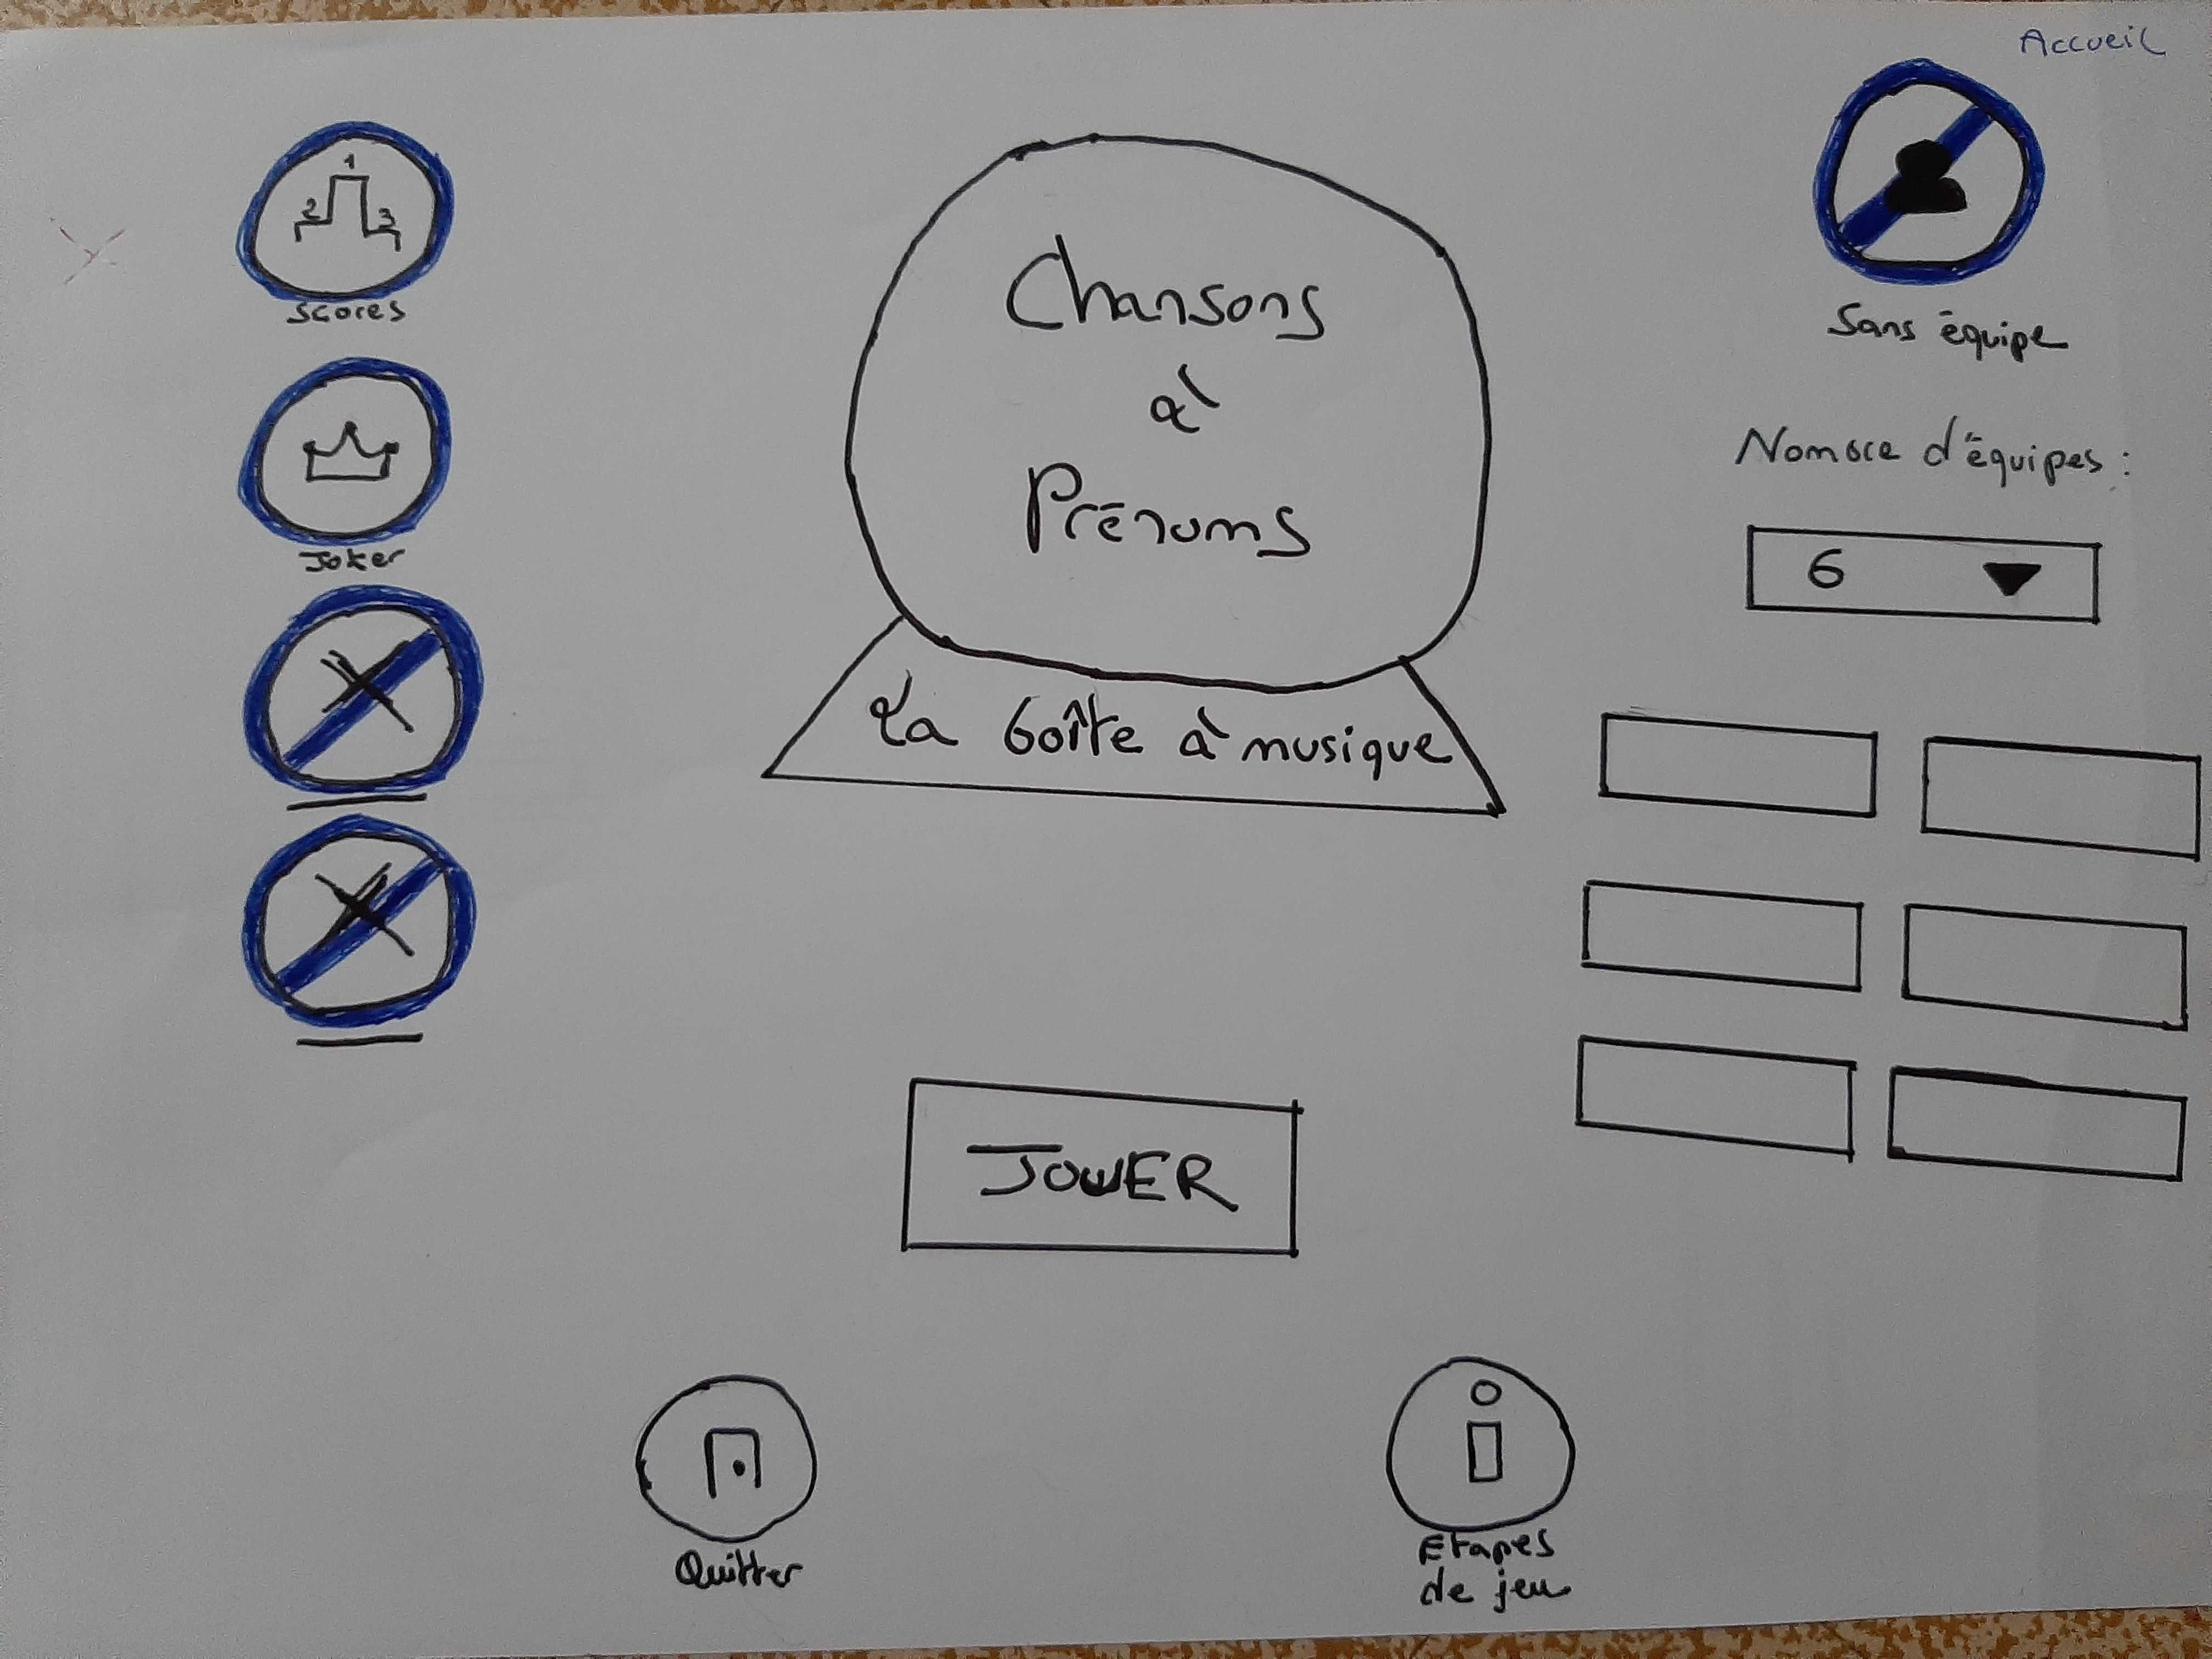 Accueil
1
2
3
Scores
Joker
Chansons
à
Prénoms
La boîte à musique
JOUER
Sans équipe
Nombre d'équipes :
6
Quitter
Etapes
de jeu